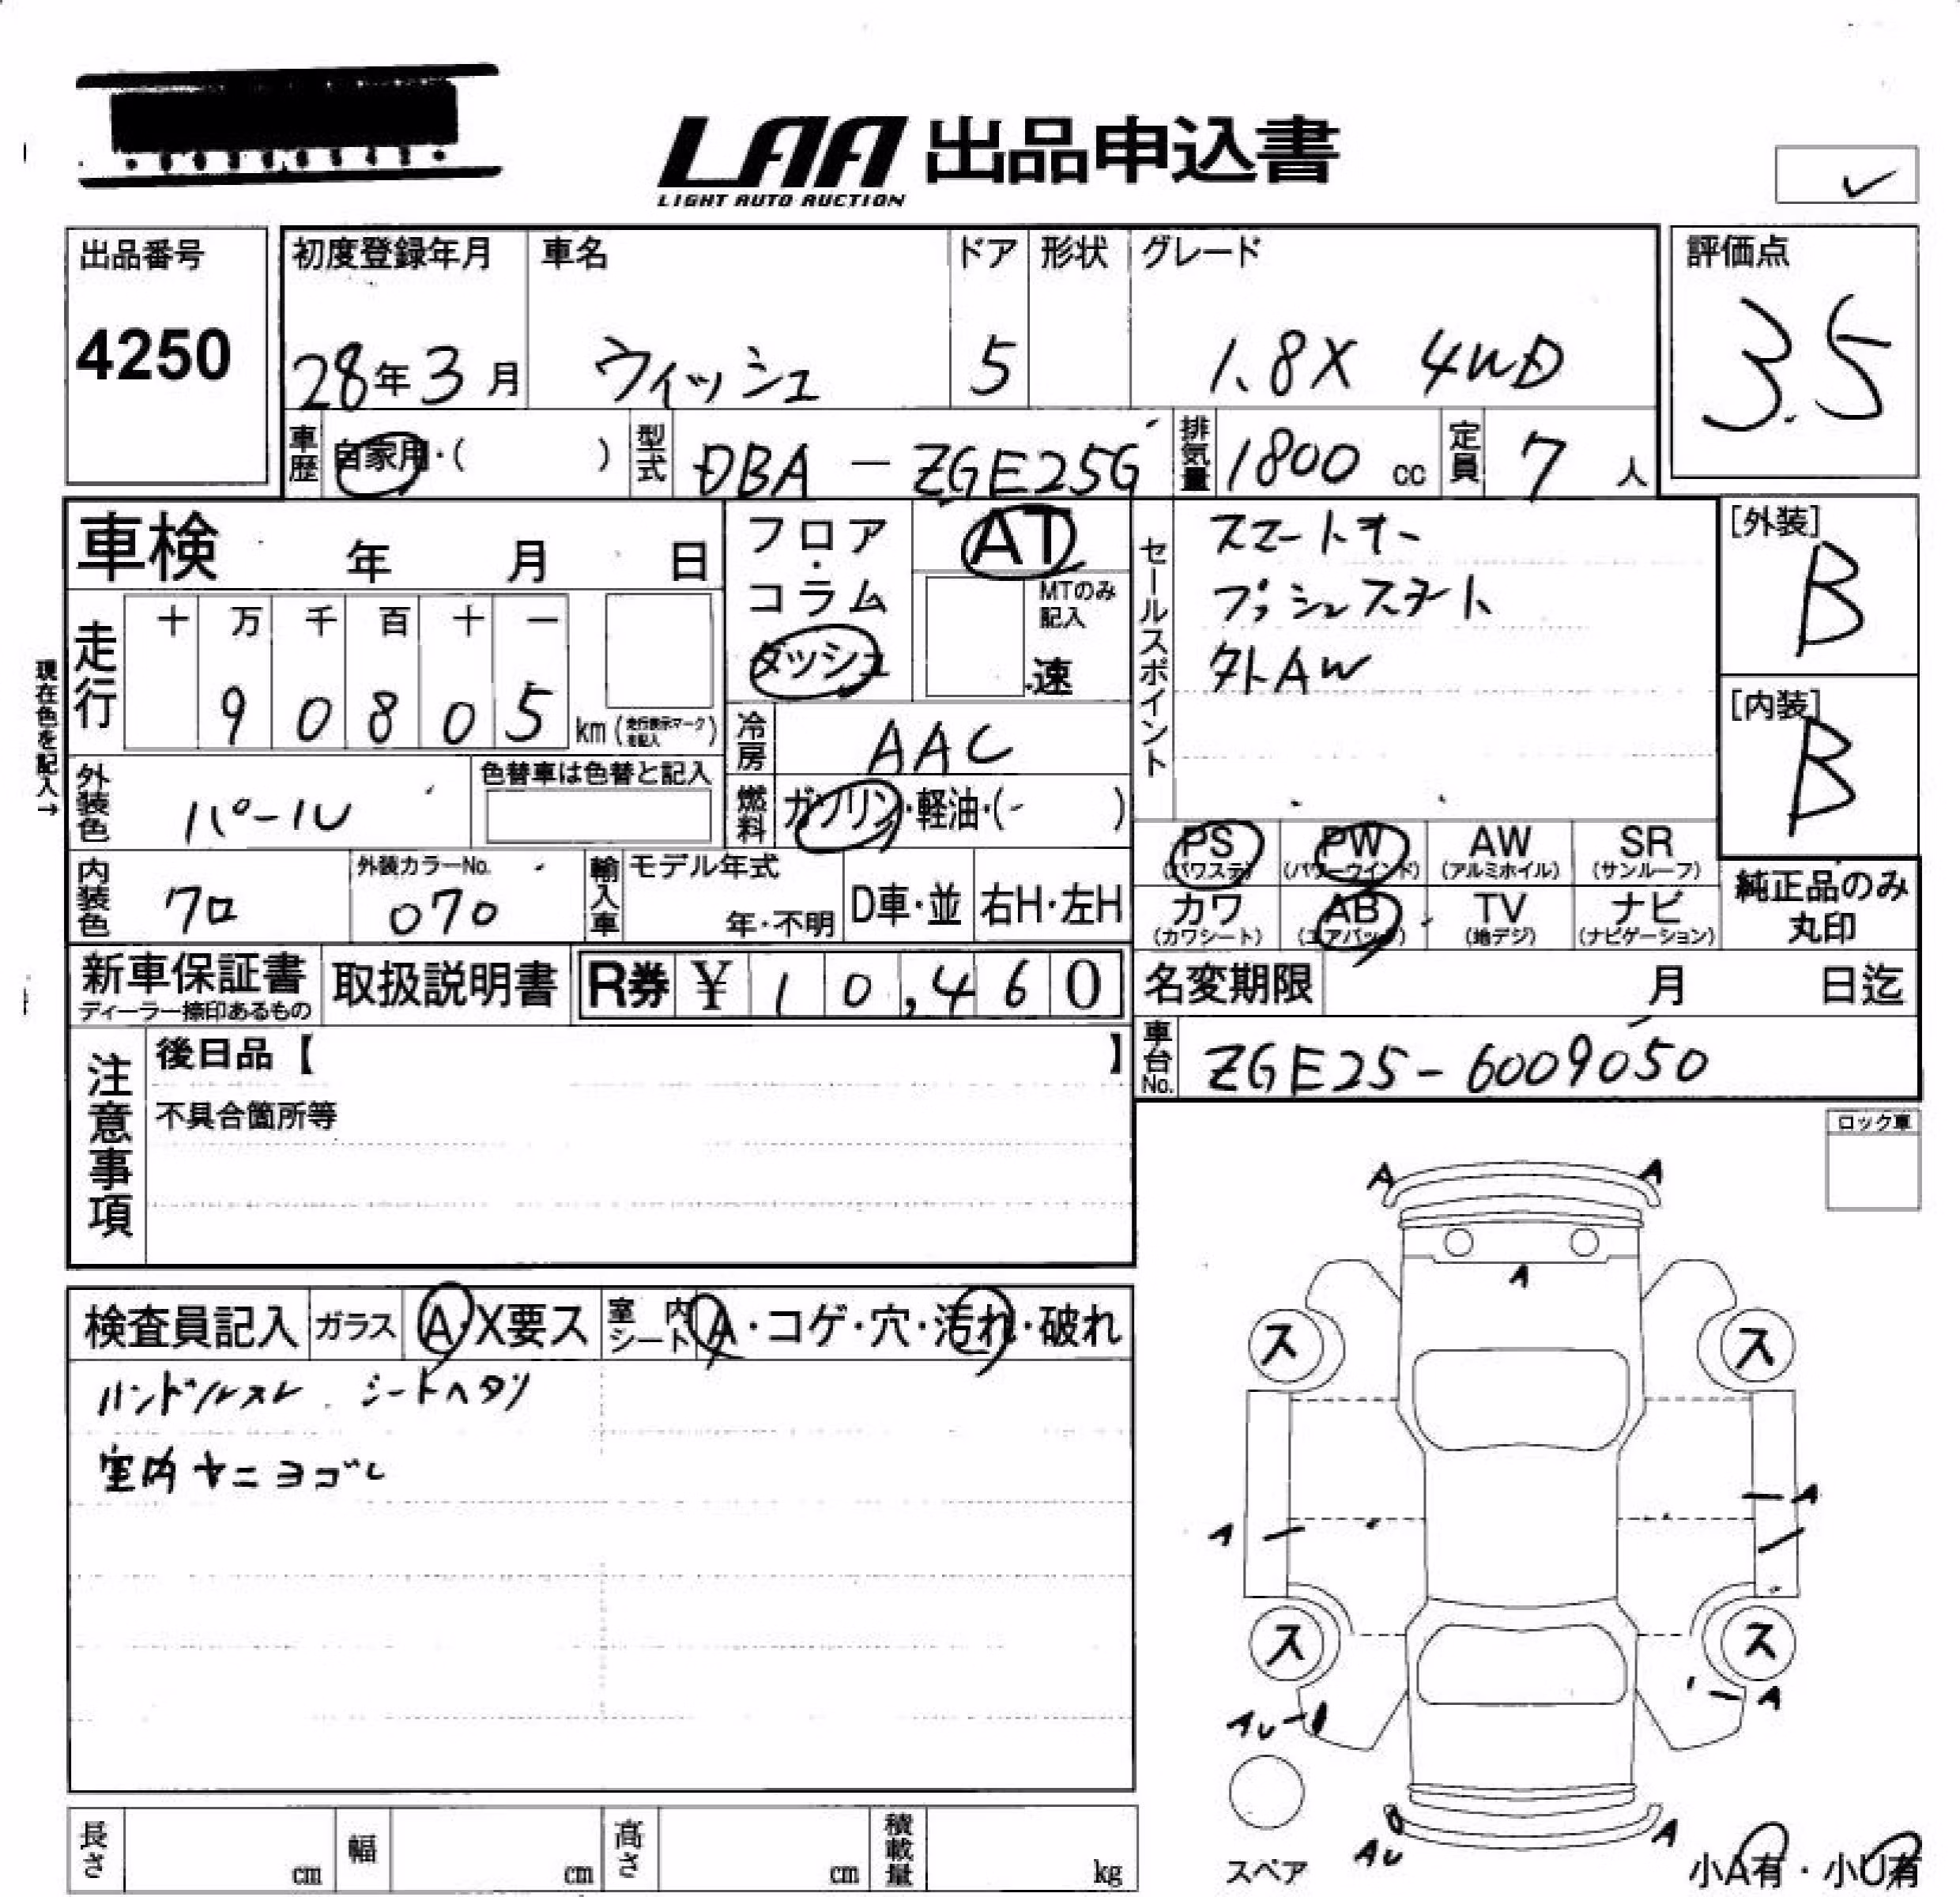 LAA 出品申込書
LIGHT AUTO AUCTION
出品番号
4250
初度登録年月
28年3月
車名
ウィッシュ
ドア
5
形状
グレード
1.8X 4WD
評価点
3.5
車歴
自家用・( )
型式
DBA - ZGE25G
排気量
1800 cc
定員
7 人
車検 年 月 日
フロア・コラム
ダッシュ
AT
MTのみ記入
速
セールスポイント
スマートキー
プッシュスタート
外AW
[外装]
B
[内装]
B
現在色を記入→
走行
十 万 千 百 十 一
9 0 8 0 5
km (走行表示マークを記入)
冷房
AAC
外装色
パール
色替車は色替と記入
燃料
ガソリン・軽油・( )
PS
(パワステ)
PW
(パワーウインド)
AW
(アルミホイル)
SR
(サンルーフ)
カワ
(カワシート)
AB
(エアバッグ)
TV
(地デジ)
ナビ
(ナビゲーション)
純正品のみ
丸印
内装色
クロ
外装カラーNo.
070
輸入車
モデル年式
年・不明
D車・並
右H・左H
新車保証書
ディーラー捺印あるもの
取扱説明書
R券 ¥ 10,460
名変期限 月 日迄
車台No.
ZGE25-6009050
注意事項
後日品【 】
不具合箇所等
ロック車
検査員記入
ガラス
A・X要ス
室内シート
A・コゲ・穴・汚れ・破れ
ハンドルスレ シートヘタリ
室内ヤニヨゴレ
A A
A
ス ス
A
A
ス ス
A
AU
AU
A
スペア
小A有・小U有
長さ cm
幅 cm
高さ cm
積載量 kg